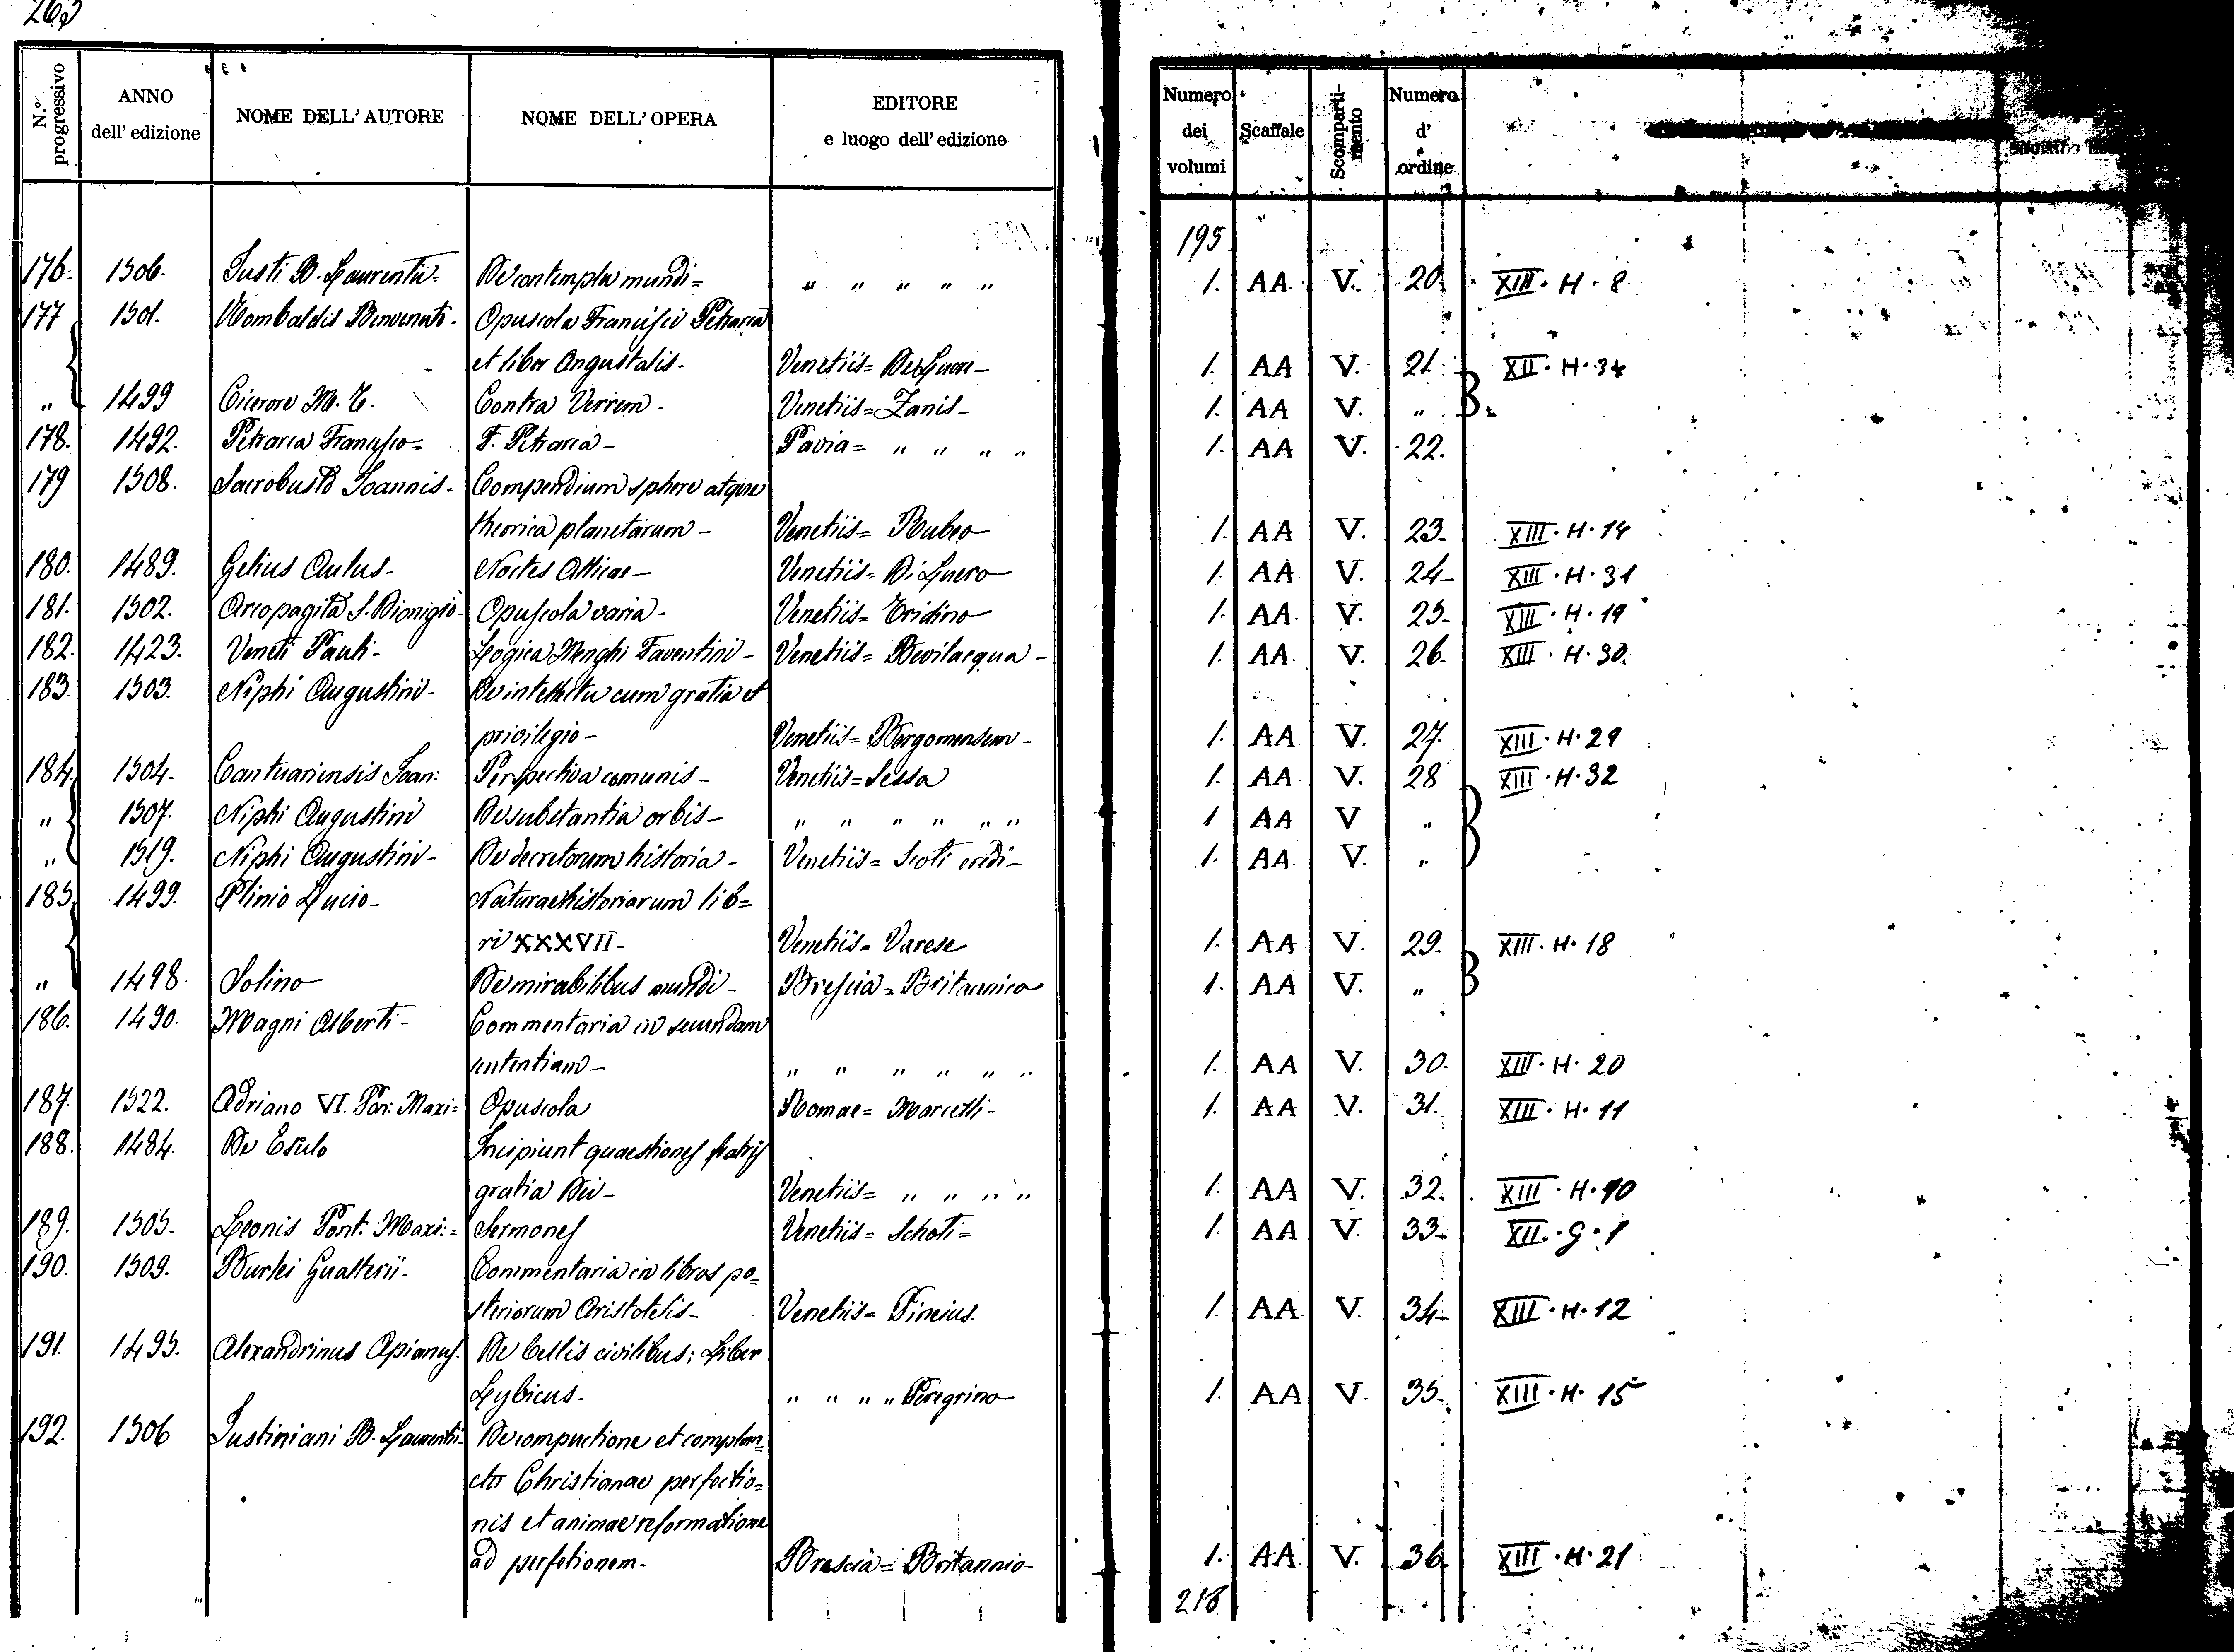 263
N.° progressivo | ANNO dell' edizione | NOME DELL' AUTORE | NOME DELL' OPERA | EDITORE e luogo dell' edizione | Numero dei volumi | Scaffale | Scomparti-mento | Numero d' ordine
195
176. 1506. Justi B. Laurentii. De contemplu mundi= " " " " " 1. AA. V. 20. XIII. H. 8
177 1501. Rombaldis Benvenuto. Opuscola Francisci Petrarca
et liber Augustalis- Venetiis= De Luere- 1. AA V. 21 XII. H. 34
" 1499 Cicerone M. T. Contra Verrem. Venetiis= Zanis- 1. AA V. "
178. 1492. Petrarca Francesco= F. Petrarca- Pavia= " " " " 1. AA V. 22.
179 1508. Sacrobusto Joannis. Compendium sphere atque
theorica planetarum- Venetiis= Rubeo 1. AA V. 23. XIII. H. 14
180. 1489. Gelius Aulus- Noctes Atticae- Venetiis= Di Luero 1. AA. V. 24- XIII. H. 31
181. 1502. Areopagita S. Dionigio. Opuscola varia- Venetiis= Tridino 1. AA. V. 25- XIII. H. 19
182. 1423. Veneti Pauli- Logica Menghi Faventini- Venetiis= Bevilacqua- 1. AA. V. 26. XIII. H. 30.
183. 1503. Niphi Augustini- De intellectu cum gratia et
privilegio- Venetiis= Bergomensem- 1. AA V. 27. XIII. H. 29
184. 1504. Cantuariensis Joan: Perspectiva comunis- Venetiis= Sessa 1. AA V. 28 XIII. H. 32
" 1507. Niphi Augustini De substantia orbis- " " " " " " 1 AA V "
" 1519. Niphi Augustini- De decretorum historia- Venetiis= Scoti eredi- 1. AA. V. "
185. 1499. Plinio Lucio- Naturae historiarum lib=
ri XXXVII- Venetiis= Varese 1. AA V. 29. XIII. H. 18
" 1498. Solino De mirabilibus mundi- Brescia= Britannico 1. AA V. "
186. 1490. Magni Alberti- Commentaria in secundam
sententiam- " " " " " " 1. AA V. 30. XIII. H. 20
187. 1522. Adriano VI. Pon: Maxi= Opuscola Romae= Marcelli- 1. AA V. 31. XIII. H. 11
188. 1484. De Esculo Incipiunt quaestiones fratris
gratia Dei- Venetiis= " " " " 1. AA V. 32. XIII. H. 10
189. 1505. Leonis Pont: Maxi:= Sermones Venetiis= Schoti= 1. AA V. 33- XII. G. 1
190. 1509. Burlei Gualterii- Commentaria in libros po=
steriorum Aristotelis- Venetiis= Pincius. 1. AA V. 34- XIII. H. 12
191. 1495. Alexandrinus Apianus. De bellis civilibus; Liber
Lybicus- " " " " Peregrino 1. AA V. 35. XIII. H. 15
192. 1506 Justiniani B. Laurentii- De compuctione et complan=
ctu Christianae perfectio=
nis et animae reformatione
ad perfetionem- Brescia= Britannio- 1. AA. V. 36 XIII. H. 21
216